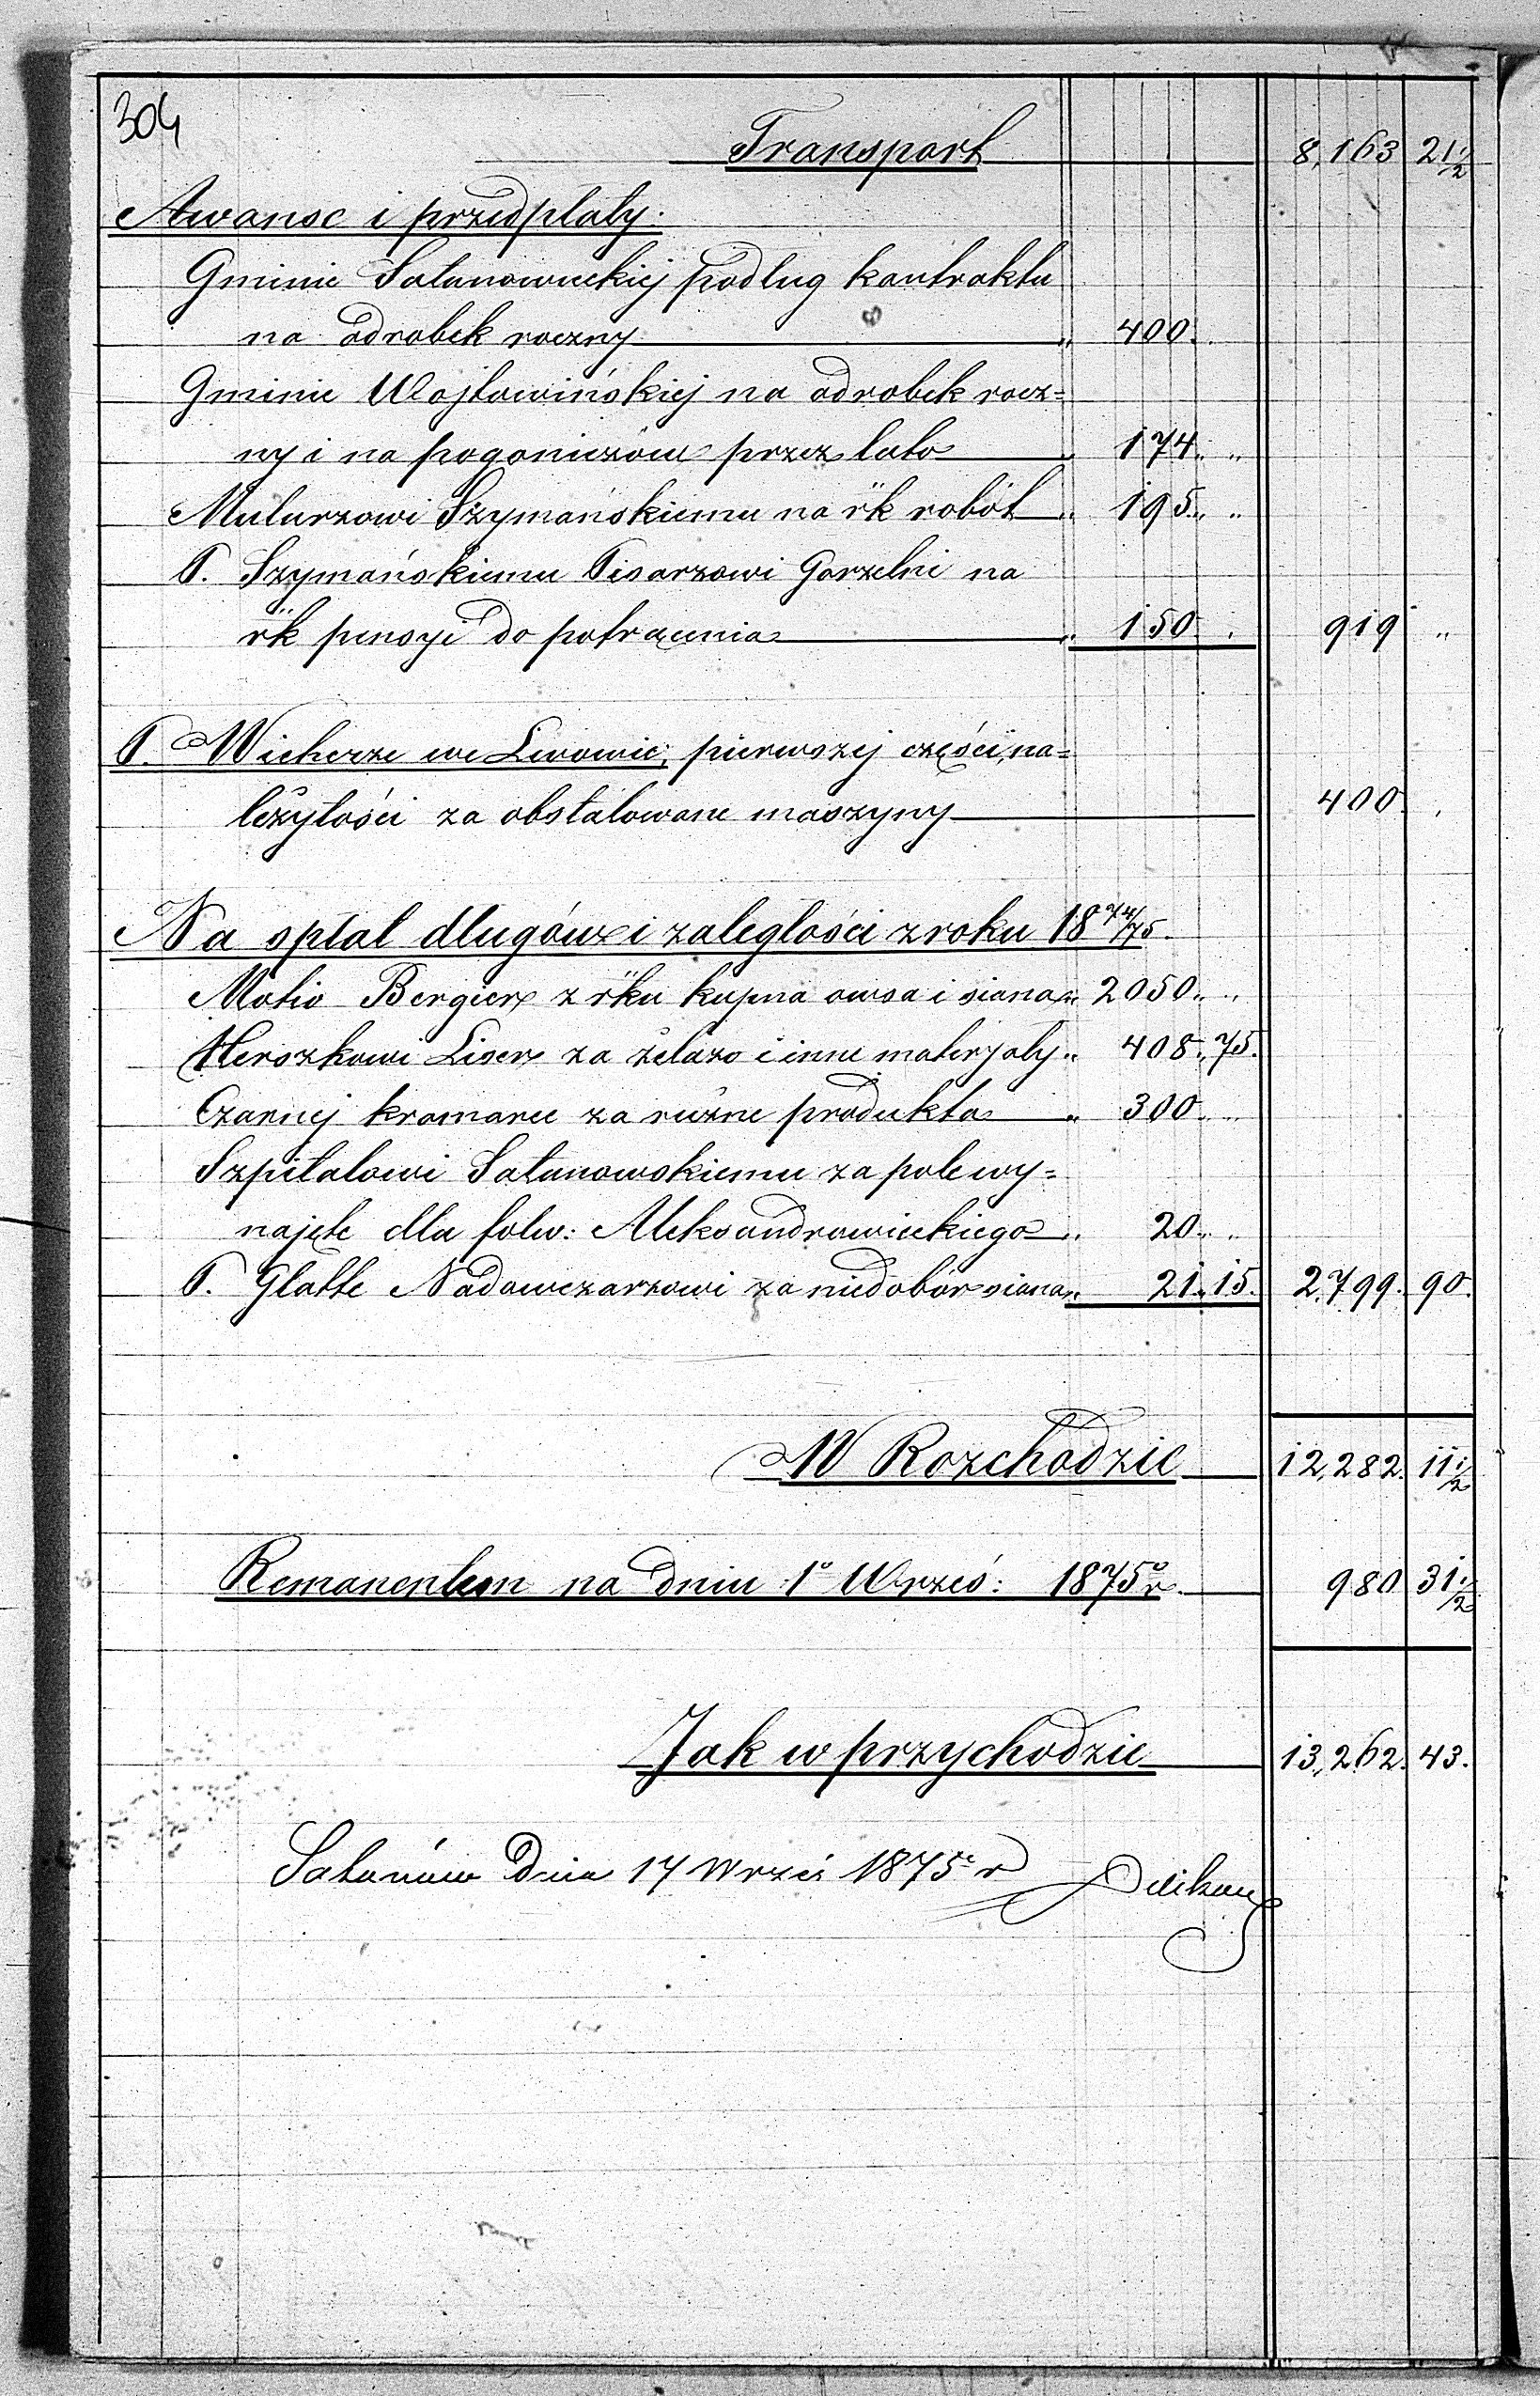 304
Transport 8,163 21 1/2
Awanse i przedpłaty.
Gminie Satanowieckiej podług kontraktu
na odrobek roczny „ 400 „
Gminie Wojtowińskiej na odrobek rocz=
ny i na pogoniczów przez lato „ 174 „ „
Mularzowi Szymańskiemu na rk robót „ 195 „ „
P. Szymańskiemu Pisarzowi Gorzelni na
rk pensyi do potracenia „ 150 „ 919 „
P. Wicherze we Lwowie; pierwszej części na=
leżytości za obstalowane maszyny 400 „
Na spłat długów i zaległości z roku 18 74/75.
Motio Bergier z rku kupna owsa i siana „ 2050 „ „
Herszkowi Liser za żelazo i inne materjały „ 408 „ 75.
Czarnej kramarce za różne produkta „ 300 „ „
Szpitalowi Satanowskiemu za pole wy=
najęte dla folw: Aleksandrowieckiego „ 20 „ „
P. Glatte Nadowczarzowi za niedobór siana „ 21 „ 15. 2,799. 90.
W Rozchodzie 12,282. 11 1/2
Remanentem na dniu 1o Wrześ: 1875o r. 980 31 1/2
Jak w przychodzie 13,262. 43.
Satanów Dnia 17 Wrześ 1875o r